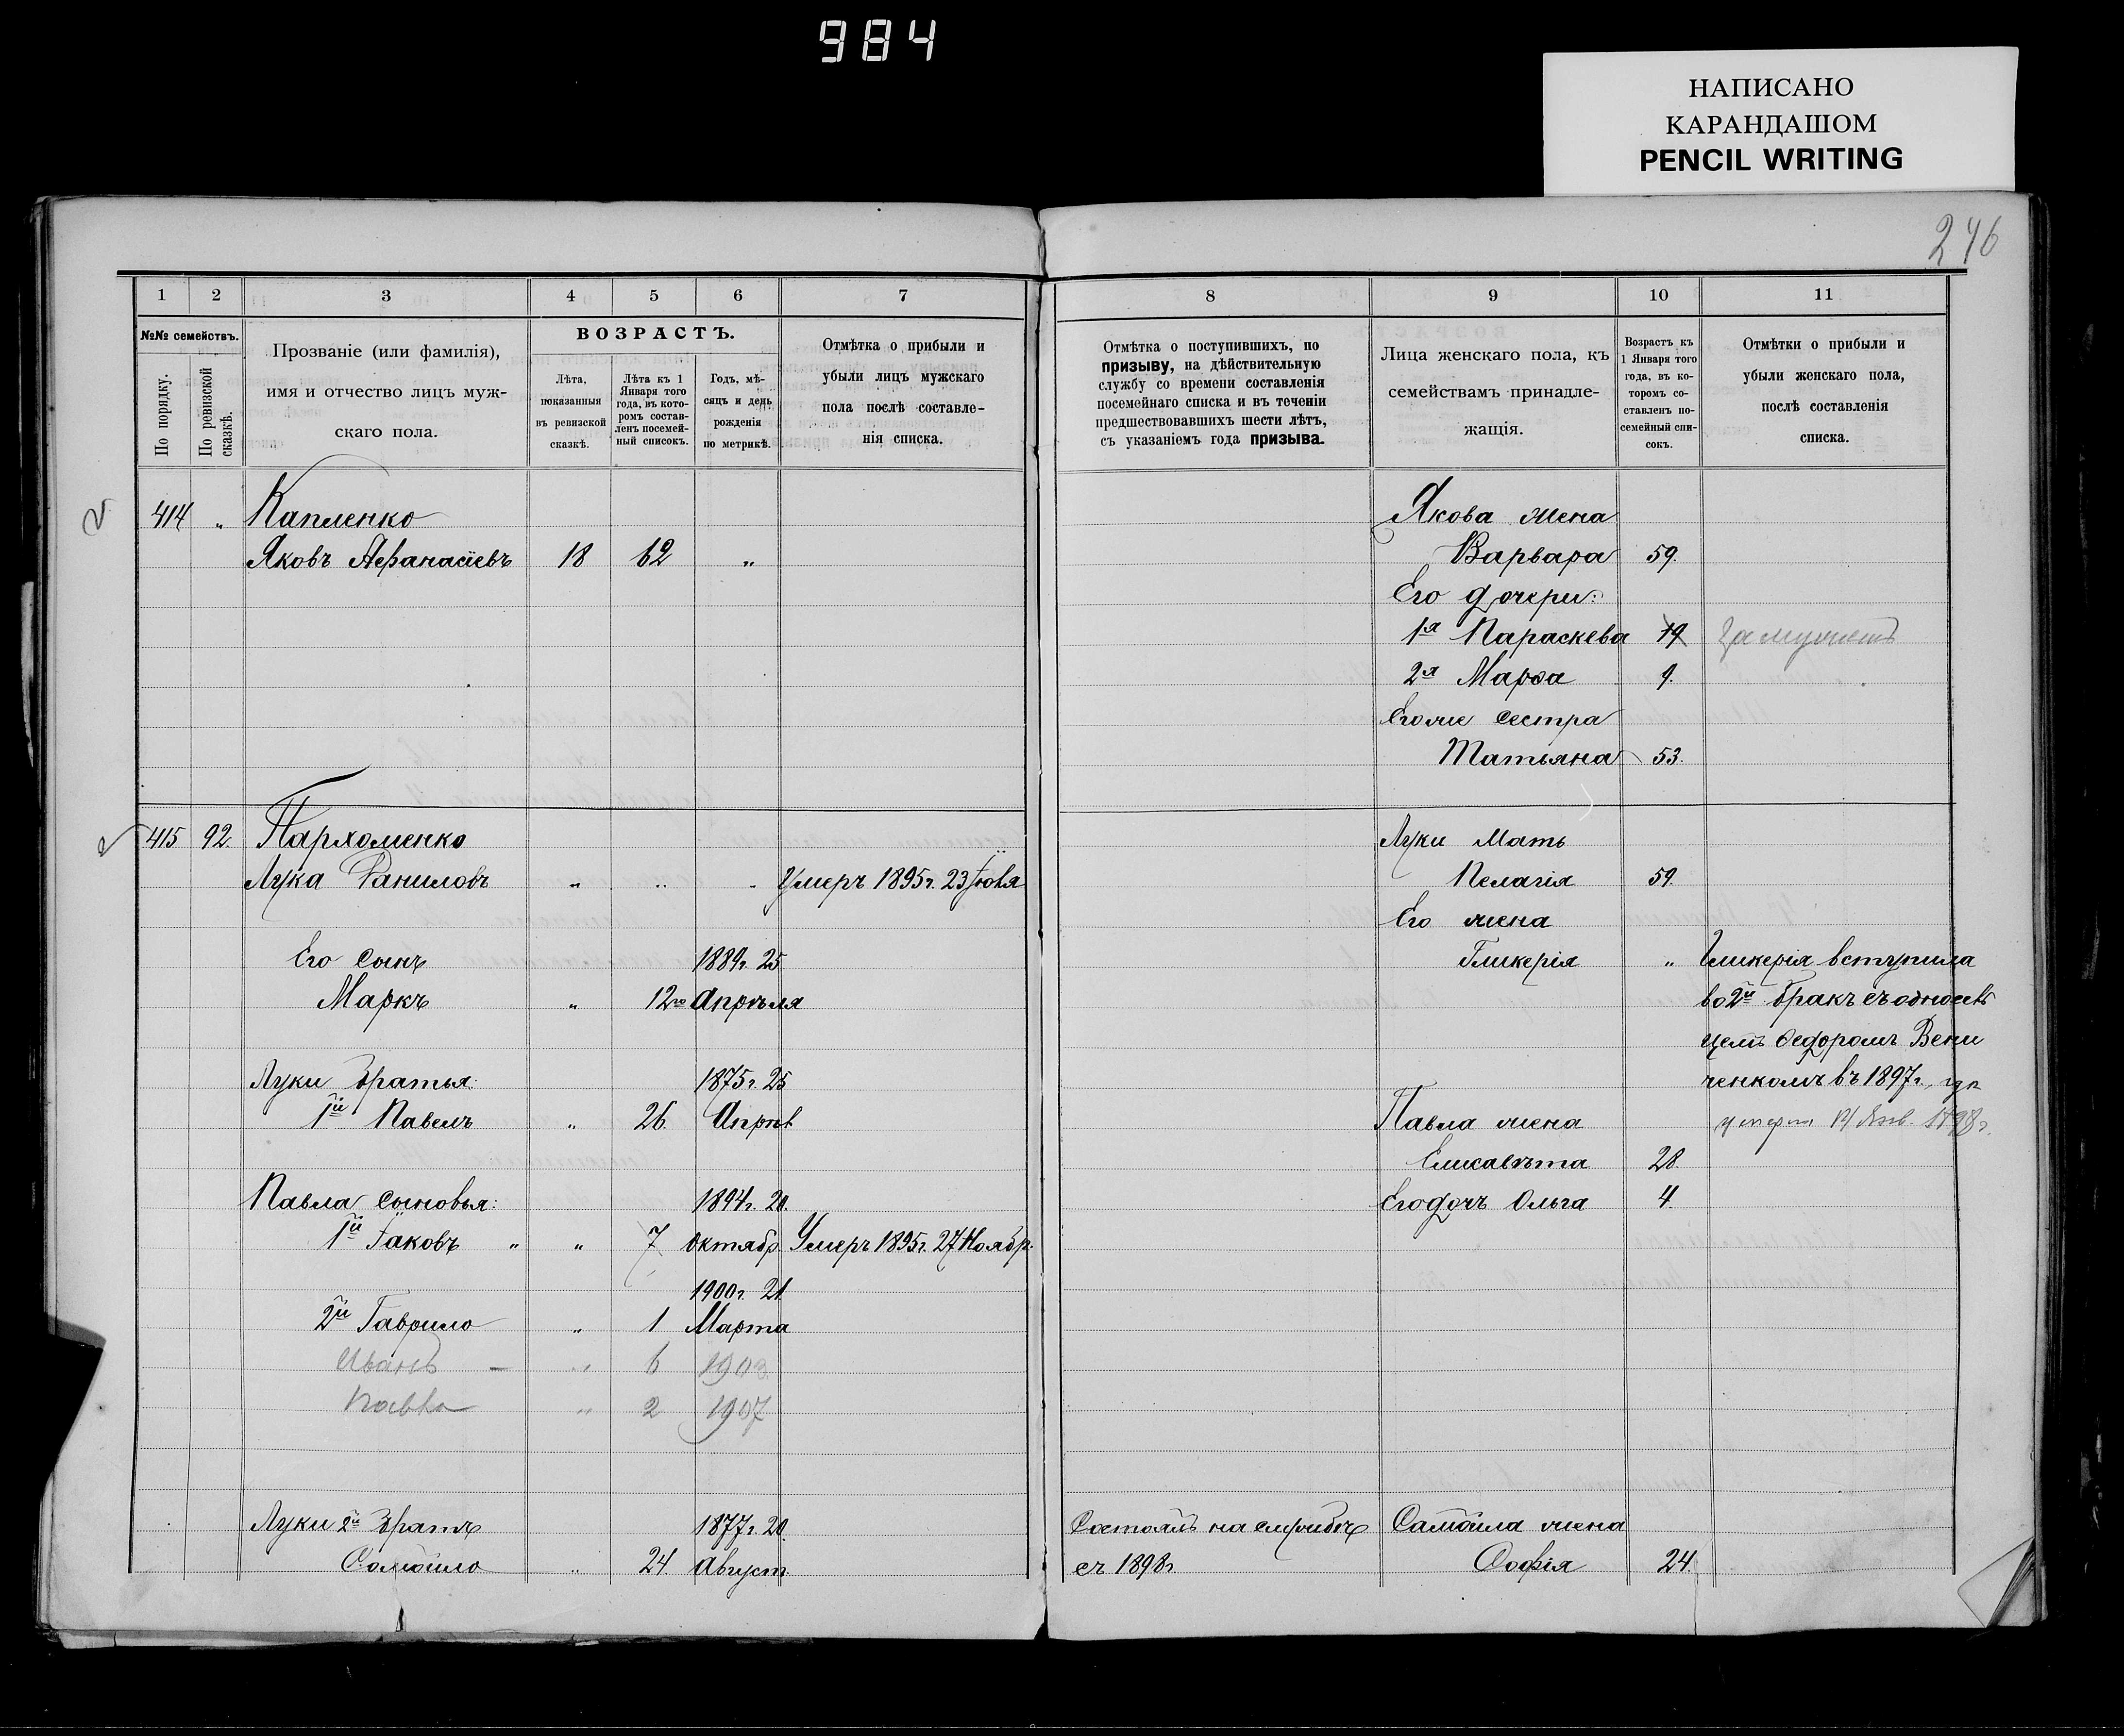 984
НАПИСАНО
КАРАНДАШОМ
PENCIL WRITING
246
1 2 3 4 5 6 7
№№ семействъ.
По порядку.
По ревизской сказкѣ.
Прозваніе (или фамилія),
имя и отчество лицъ муж-
скаго пола.
ВОЗРАСТЪ.
Лѣта,
показанныя
въ ревизской
сказкѣ.
Лѣта къ 1
Января того
года, въ кото-
ромъ состав-
ленъ посемей-
ный списокъ.
Годъ, мѣ-
сяцъ и день
рожденія
по метрикѣ.
Отмѣтка о прибыли и
убыли лицъ мужскаго
пола послѣ составле-
нія списка.
414 „ Капленко
Яковъ Афанасіевъ 18 62 „
415 92. Пархоменко
Лука Даниловъ „ „ „ Умеръ 1895г. 23 Іюля
Его сынъ 1889г. 25
Маркъ „ 12 Апрѣля
Луки братья: 1875г. 25
1й Павелъ „ 26. Апрѣл
Павла сыновья: 1894г. 20.
1й Іаковъ „ „ 7 октябр. Умеръ 1895г. 27 Ноябр.
1900г. 21.
2й Гаврило „ 1 Марта
Иванъ — „ 6 1903
Павло „ 2 1907
Луки 2й братъ 1877г. 20
Самойло „ 24. Август
8 9 10 11
Отмѣтка о поступившихъ, по
призыву, на дѣйствительную
службу со времени составленія
посемейнаго списка и въ теченіи
предшествовавшихъ шести лѣтъ,
съ указаніемъ года призыва.
Лица женскаго пола, къ
семействамъ принадле-
жащія.
Возрастъ къ
1 Января того
года, въ ко-
торомъ со-
ставленъ по-
семейный спи-
сокъ.
Отмѣтки о прибыли и
убыли женскаго пола,
послѣ составленія
списка.
Якова жена
Варвара 59.
Его дочери:
1я Параскева 19 замужемъ
2я Марѳа 9.
Егоже сестра
Татьяна 53.
Луки Мать
Пелагія 59.
Его жена
Гликерія „ Гликерія вступила
во 2й бракъ съ односель
цемъ Ѳедоромъ Вени
ченкомъ въ 1897г.,
Павла жена
Елисавѣта 28.
Его дочь Ольга 4.
Состоялъ на службѣ Самойла жена
съ 1898г. Софія 24.